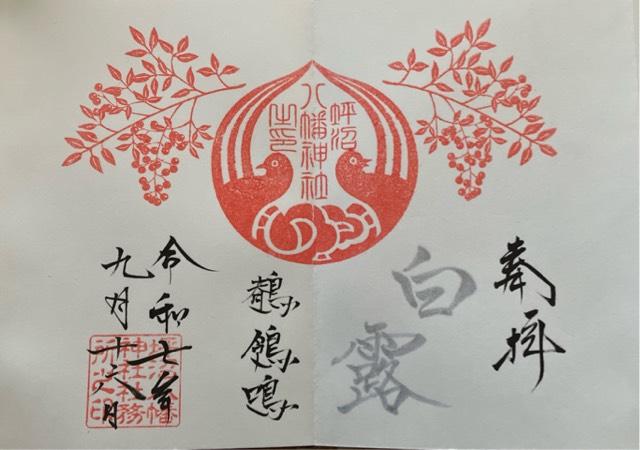 奉拝
白露
坪沼
八幡神社
之印
鶺鴒鳴
令和七年
九月十六日
坪沼八幡
神社社務
所之印